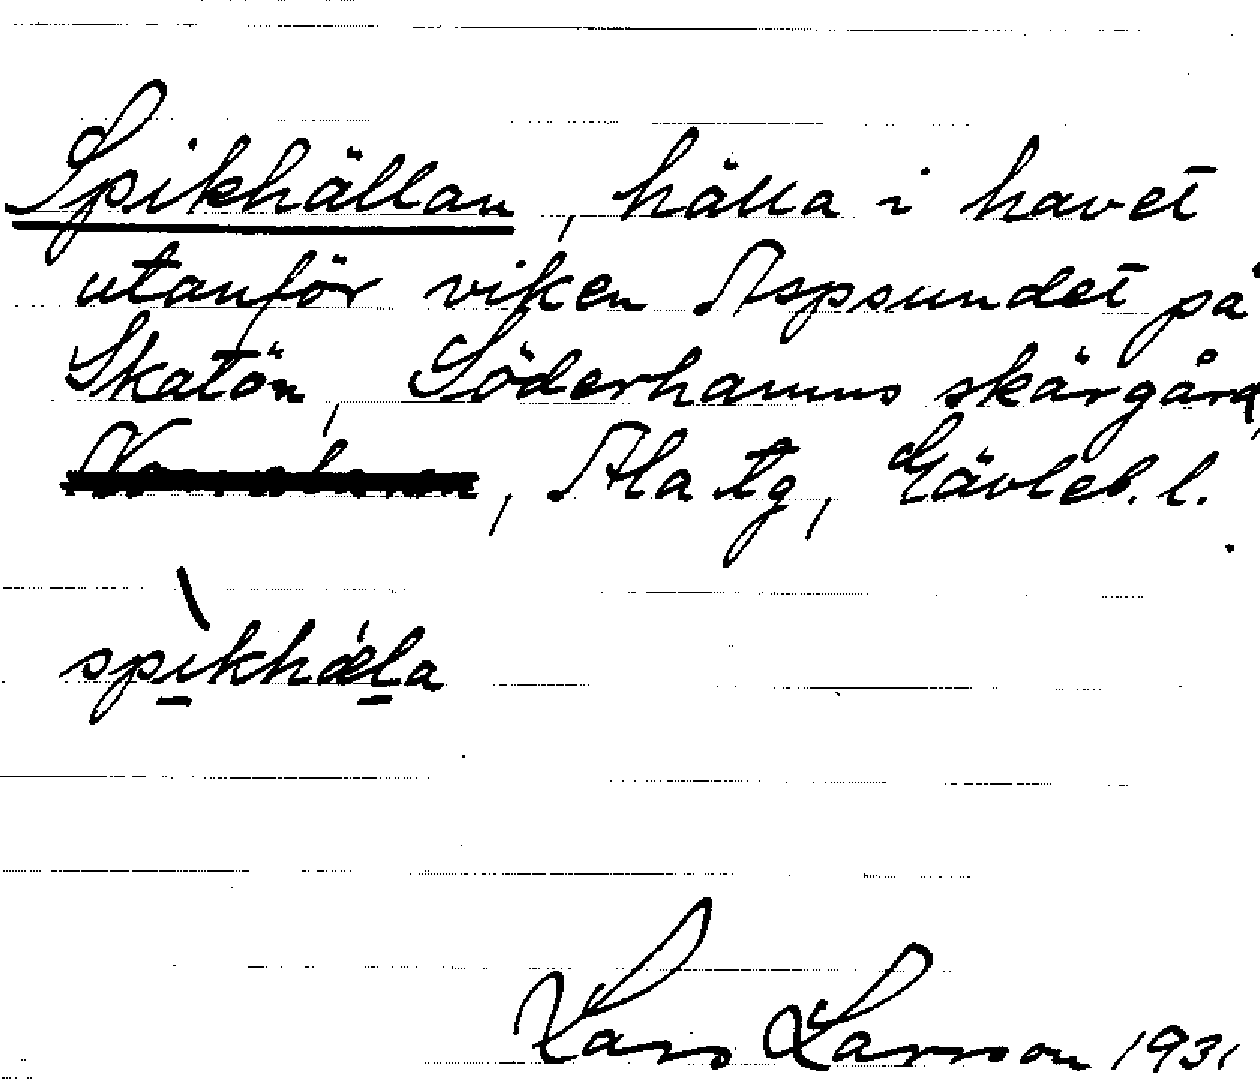 Spikhällan, hälla i havet
utanför viken Aspsundet på
Skatön, Söderhamns skärgård,
, Ala tg, Gävleb. l.
spikhæla
Lars Larsson 1931